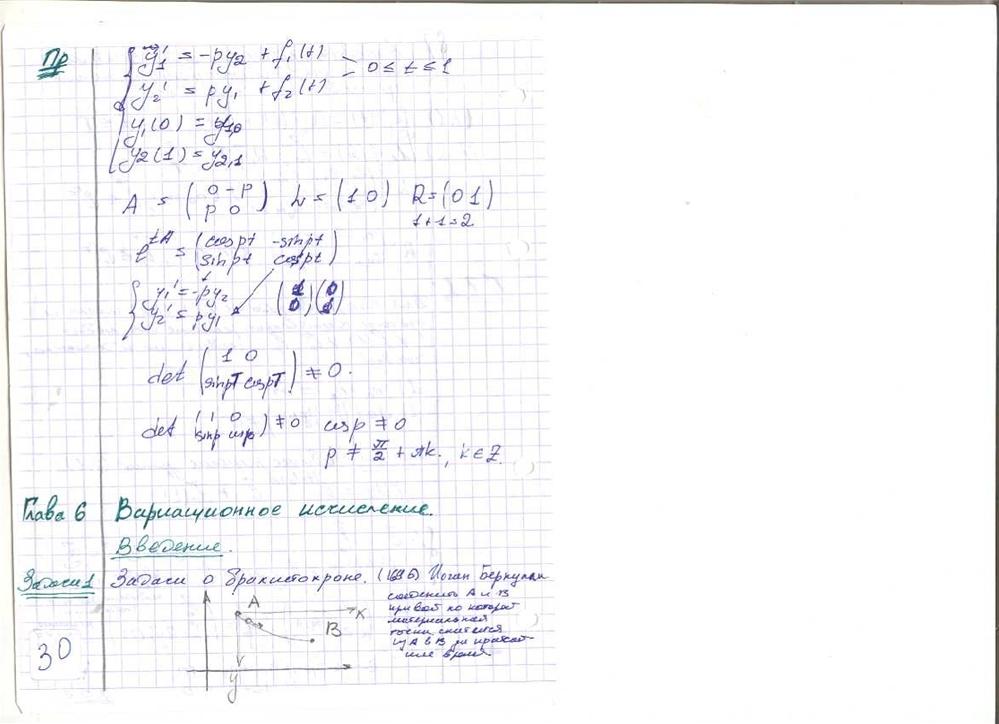 Пр
y₁' = -py₂ + f₁(t)
0 ≤ t ≤ 1
y₂' = py₁ + f₂(t)
y₁(0) = y₁,₀
y₂(1) = y₂,₁
A = (0 -p
p 0) L = (1 0) R = (0 1)
1+1=2
e^{tA} = (cos pt -sin pt
sin pt cos pt)
y₁' = -py₂ (1 0) (0 1)
y₂' = py₁
det (1 0
sin pT cos pT) ≠ 0.
det (1 0
sin p cos p) ≠ 0 cos p ≠ 0
p ≠ π/2 + πk, k ∈ Z.
Глава 6 Вариационное исчисление.
Введение.
Задача 1 Задача о брахистохроне. (1696) Иоган Бернулли
соединить A и B
кривой по которой
материальная
точка скатится
из A в B за кратчай-
шее время
A
x
B
y
30